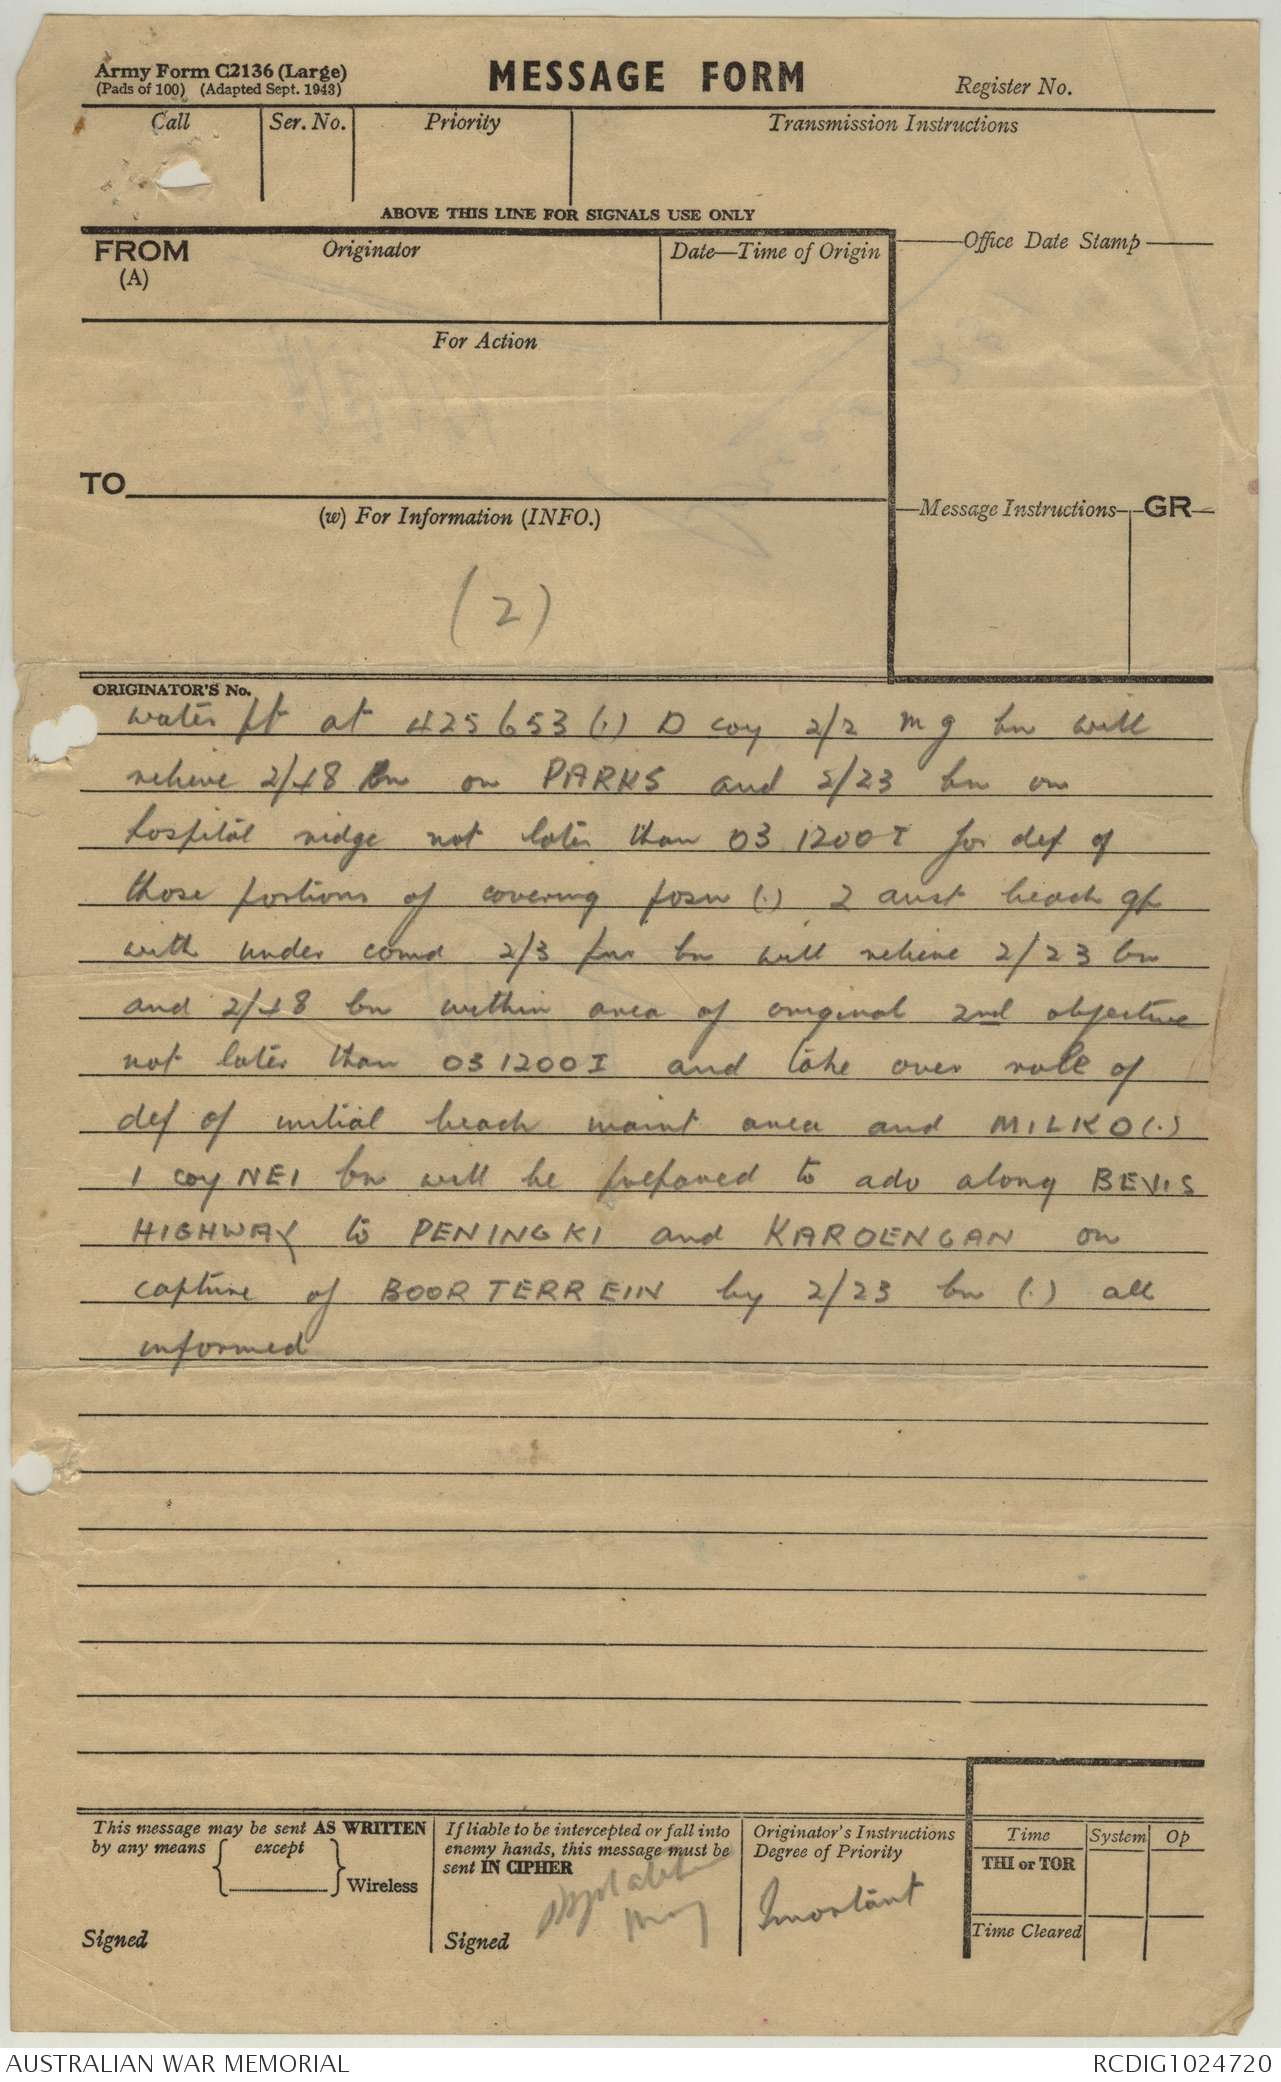 Army Form C2136 (Large)
(Pads of 100) (Adapted Sept. 1943)
MESSAGE FORM
Register No.
Call
Ser. No.
Priority
Transmission Instructions
ABOVE THIS LINE FOR SIGNALS USE ONLY
FROM
(A)
Originator
Date—Time of Origin
Office Date Stamp
For Action
TO
(w) For Information (INFO.)
Message Instructions
GR
(2)
ORIGINATOR'S No.
water pt at 425653 (.) D coy 2/2 mg bn will
relieve 2/48 bn on PARKS and 2/23 bn on
hospital ridge not later than 03 1200 I for def of
those portions of covering posn (.) 2 aust beach gp
with under comd 2/3 pnr bn will relieve 2/23 bn
and 2/48 bn within area of original 2nd objective
not later than 03 1200 I and take over role of
def of initial beach maint area and MILKO (.)
1 coy NEI bn will be prepared to adv along BEVIS
HIGHWAY to PENINGKI and KAROENGAN on
capture of BOORTERREIN by 2/23 bn (.) all
informed
This message may be sent AS WRITTEN
by any means { except } Wireless
Signed
If liable to be intercepted or fall into
enemy hands, this message must be
sent IN CIPHER
Signed
Originator's Instructions
Degree of Priority
Important
Time
System
Op
THI or TOR
Time Cleared
AUSTRALIAN WAR MEMORIAL
RCDIG1024720